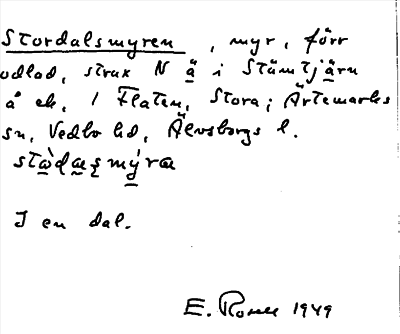 Stordalsmyren, myr, förr
odlad, strax N ä i Stämtjärn
å ek. 1 Flaten, Stora; Ärtemarks
sn, Vedbo hd, Älvsborgs l.
stὼdæʂmýra
I en dal.
E. Rosell 1949